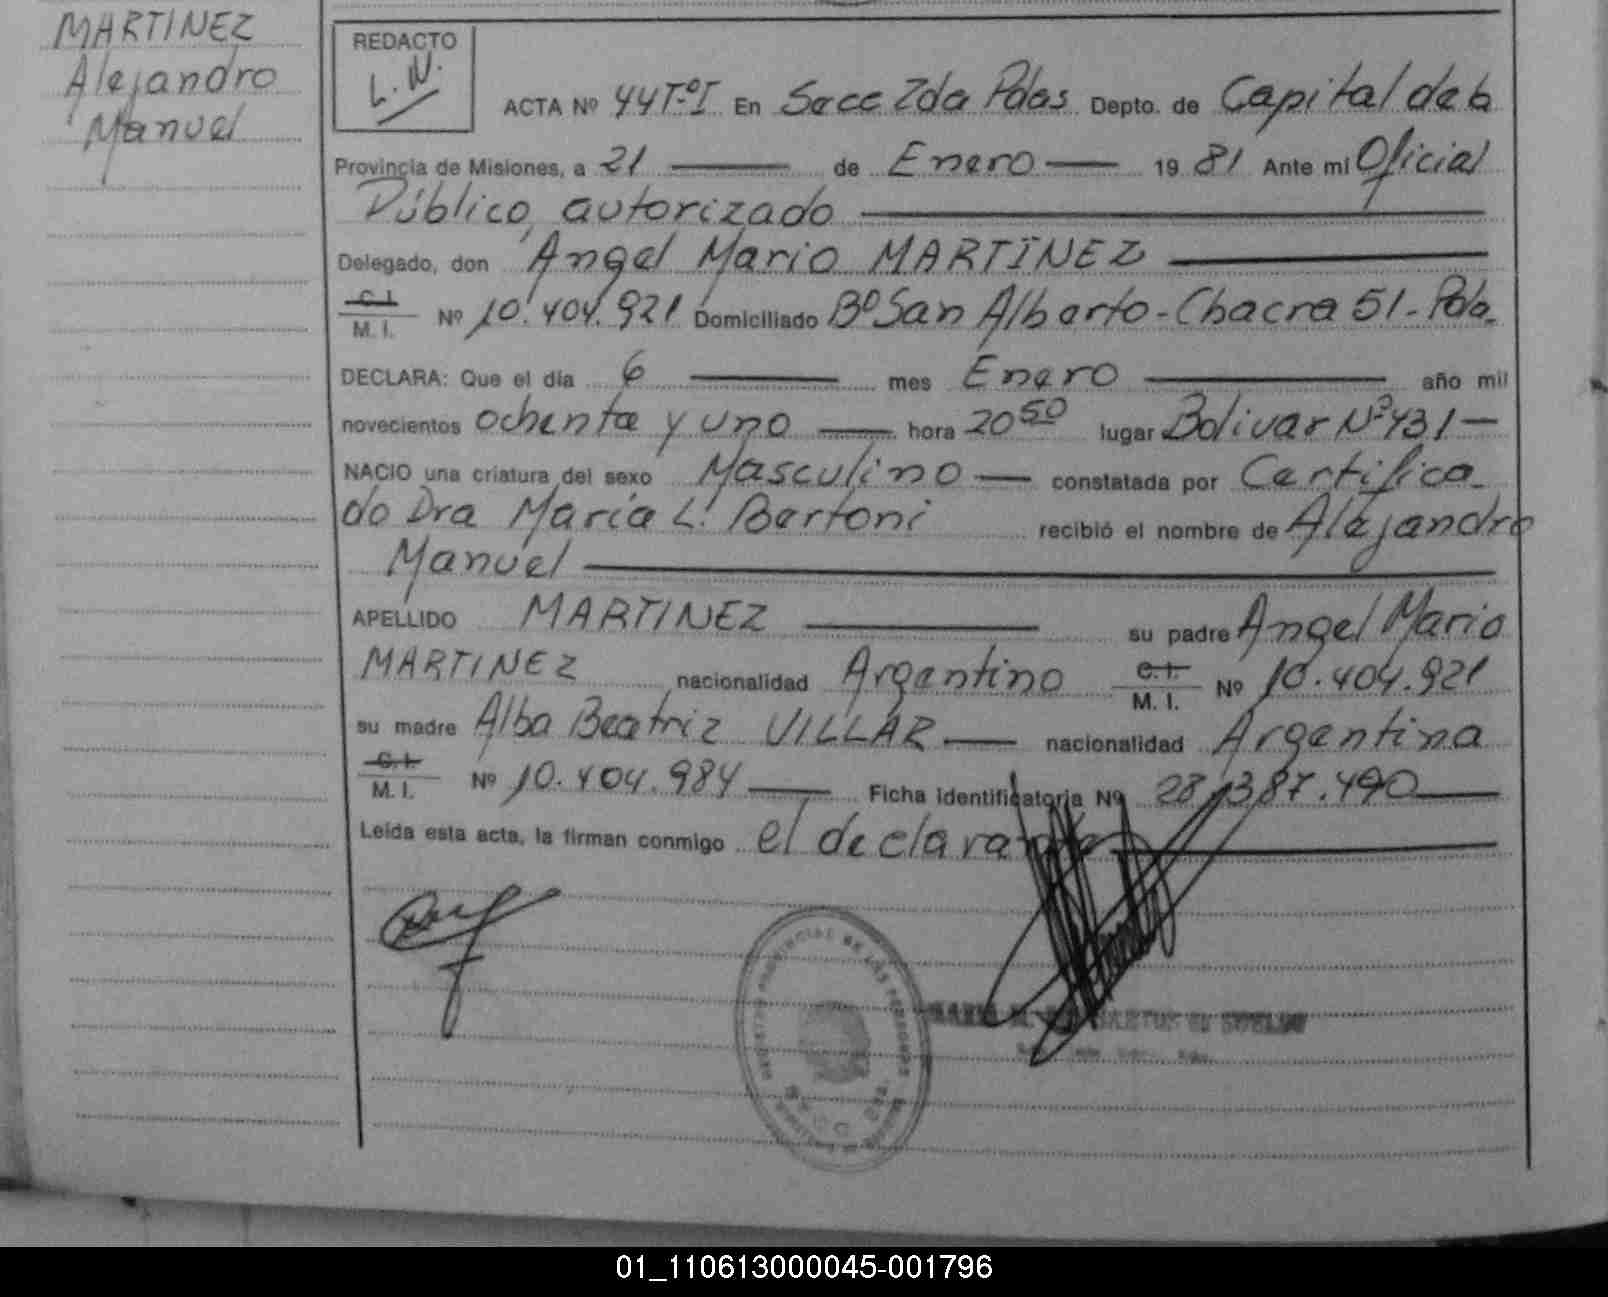 MARTINEZ
Alejandro
Manuel
REDACTO
L.N.
ACTA Nº 44Tº-I En Secc 2da Pdas Depto. de Capital de la
Provincia de Misiones, a 21 de Enero 19 81 Ante mi Oficial
Público, autorizado
Delegado, don Angel Mario MARTINEZ
C.I.
M. I. Nº 10.404.921 Domiciliado Bº San Alberto - Chacra 51 - Pda.
DECLARA: Que el día 6 mes Enero año mil
novecientos ochenta y uno hora 20 50 lugar Bolivar Nº 431
NACIO una criatura del sexo Masculino constatada por Certifica-
do Dra Maria L. Bertoni recibió el nombre de Alejandro
Manuel
APELLIDO MARTINEZ su padre Angel Mario
MARTINEZ nacionalidad Argentino C.I. M. I. Nº 10.404.921
su madre Alba Beatriz VILLAR nacionalidad Argentina
C.I.
M. I. Nº 10.404.984 Ficha identificatoria Nº 28.387.490
Leída esta acta, la firman conmigo el declarante
REGISTRO PROVINCIAL DE LAS PERSONAS
01_110613000045-001796